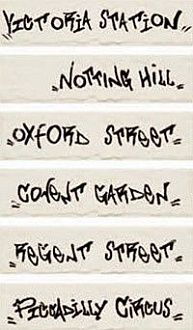 "VICTORIA STATION"
"NOTTING HILL"
"OXFORD STREET"
"COVENT GARDEN"
"REGENT STREET"
"PICCADILLY CIRCUS"